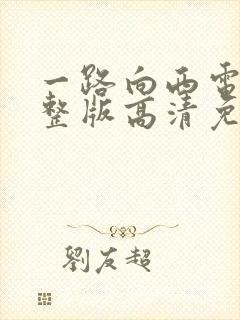 一路向西电
整版高清免
劉友超